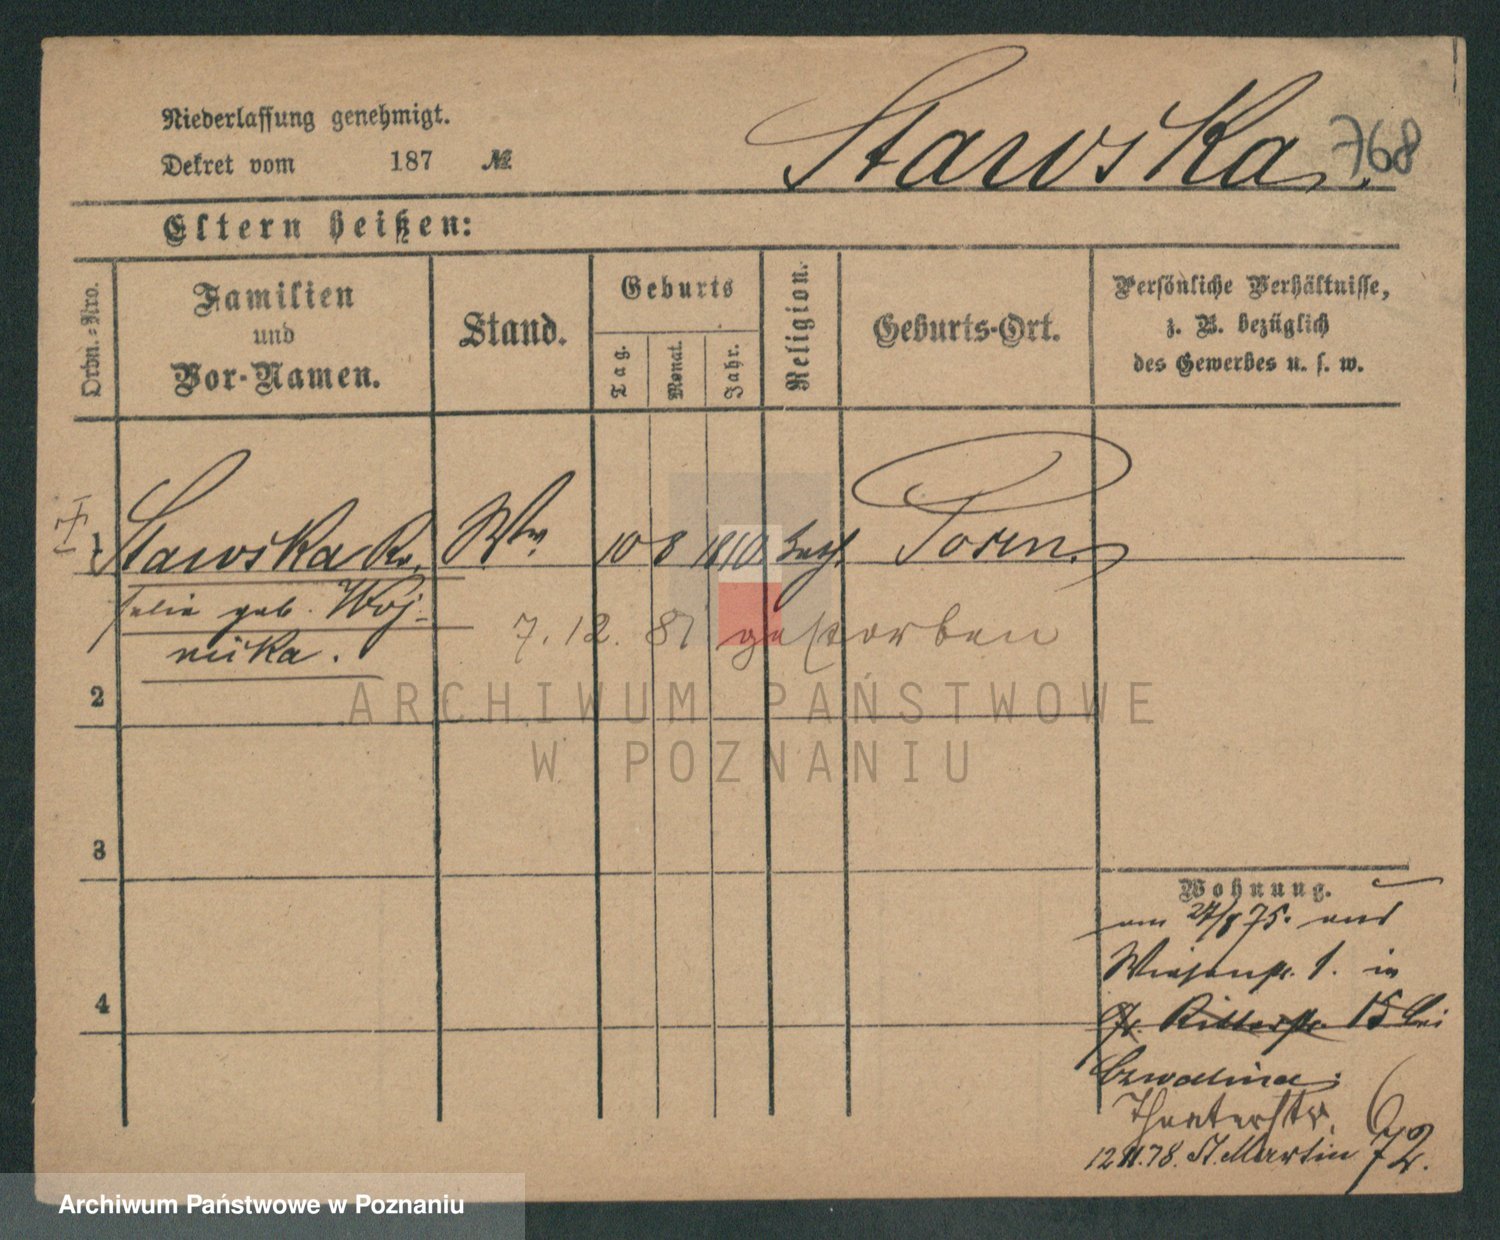 Niederlassung genehmigt.
Dekret vom 187 №
Stawska. 768
Eltern heißen:
Ordn.-Nro.
Familien
und
Vor-Namen.
Stand.
Geburts
Tag.
Monat.
Jahr.
Religion.
Geburts-Ort.
Persönliche Verhältnisse,
z. B. bezüglich
des Gewerbes u. s. w.
1 Stawska Ww. 10 8 1810 kath. Posen
geb. Woj-
nicka.
7.12.81 gestorben
2
3
4
Wohnung.
am 75. aus
Wiesenstr. 1. in
Gr. Ritterstr. 15 bei
Theaterstr. 6
12.11.78. St. Martin 72.
ARCHIWUM PAŃSTWOWE
W POZNANIU
Archiwum Państwowe w Poznaniu